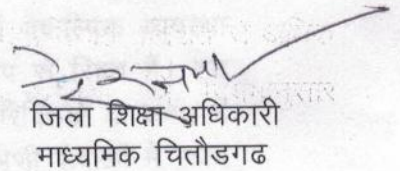 जिला शिक्षा अधिकारी
माध्यमिक चितौडगढ